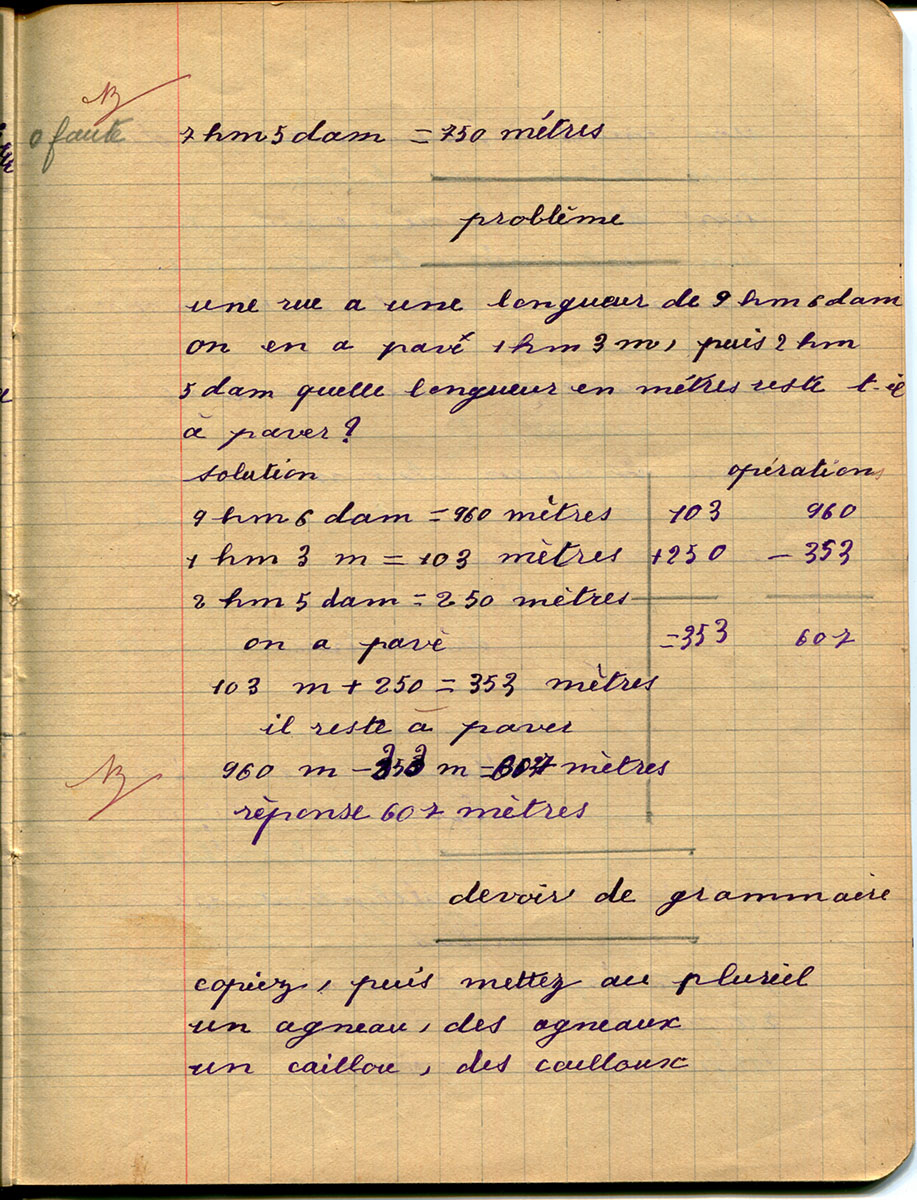 0 faute
7 hm 5 dam = 750 métres
problème
une rue a une longueur de 9 hm 6 dam
on en a pavé 1 hm 3 m, puis 2 hm
5 dam quelle longueur en métres reste t-il
à paver?
solution
opérations
9 hm 6 dam = 960 mètres
103 960
1 hm 3 m = 103 mètres
+250 - 353
2 hm 5 dam = 250 mètres
on a pavé
=353 607
103 m + 250 = 353 mètres
il reste à paver
960 m - 353 m = 607 mètres
réponse 607 mètres
devoir de grammaire
copiez, puis mettez au pluriel
un agneau, des agneaux
un caillou, des cailloux